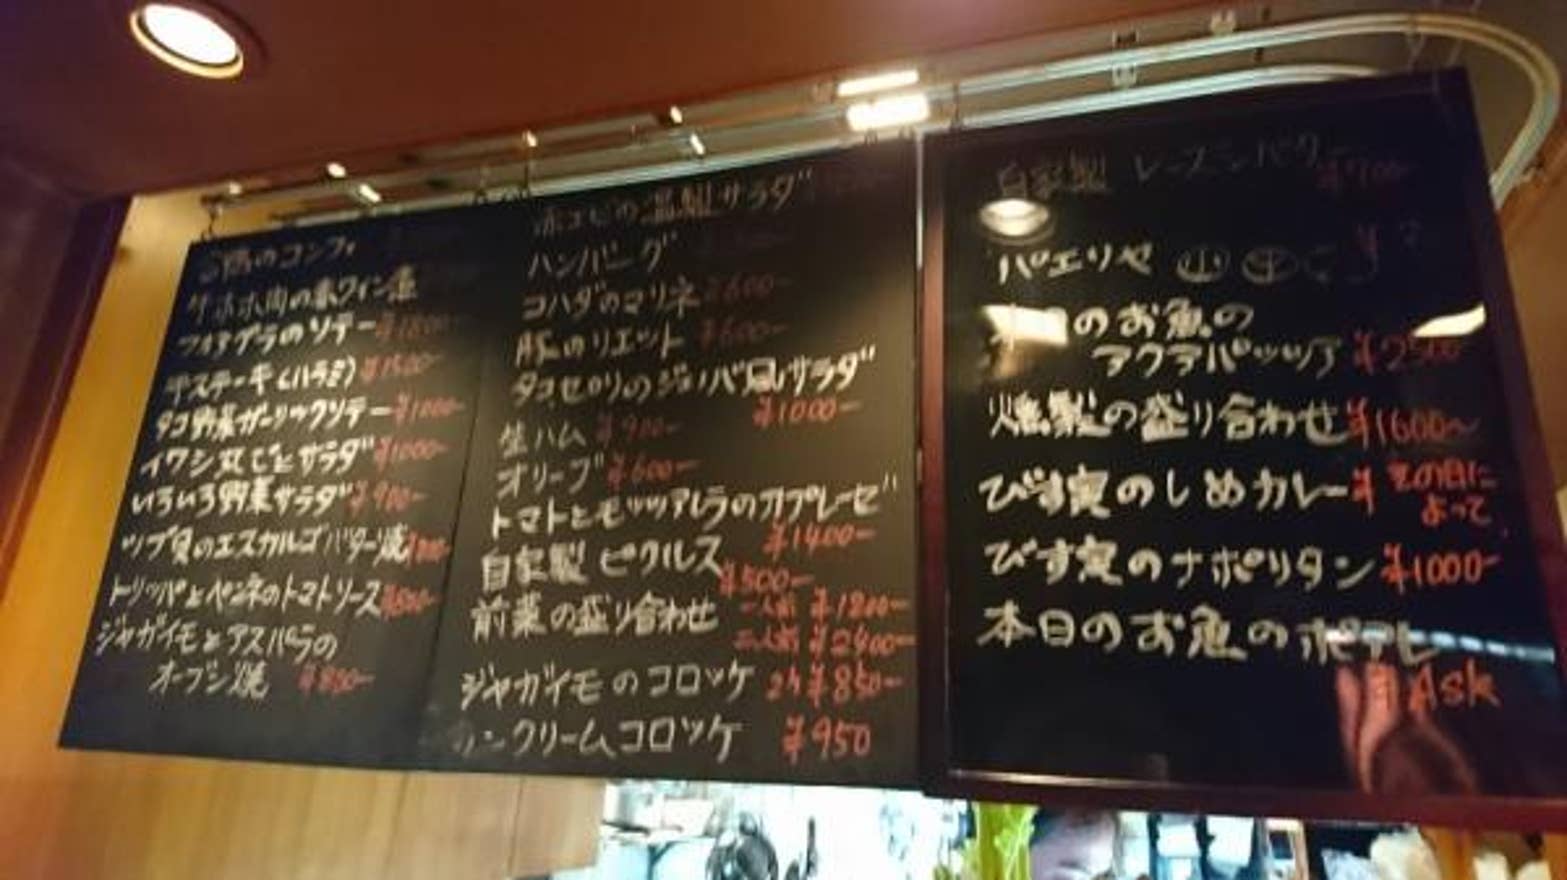 鴨のコンフィ
牛ホホ肉の赤ワイン煮
フォアグラのソテー ¥1800-
牛ステーキ(ハラミ) ¥1500-
タコ野菜ガーリックソテー ¥1000-
イワシ丸ごとサラダ ¥1000-
いろいろ野菜サラダ ¥900-
ツブ貝のエスカルゴバター焼
トリッパとペンネのトマトソース
ジャガイモとアスパラの
オーブン焼 ¥850-
赤エビの温製サラダ
ハンバーグ
コハダのマリネ ¥600-
豚のリエット ¥600-
タコセロリのジェノバ風サラダ
¥1000-
生ハム ¥900-
オリーブ ¥600-
トマトとモッツアレラのカプレーゼ
¥1400-
自家製 ピクルス
¥500-
前菜の盛り合わせ 一人前 ¥1200-
二人前 ¥2400-
ジャガイモのコロッケ 2ケ ¥850-
クリームコロッケ ¥950
自家製 レーズンバター ¥700-
パエリヤ ㊥
本日のお魚の
アクアパッツア ¥2500-
燻製の盛り合わせ ¥1600~
びす定のしめカレー ¥その日に
よって
びす定のナポリタン ¥1000-
本日のお魚のポアレ
Ask